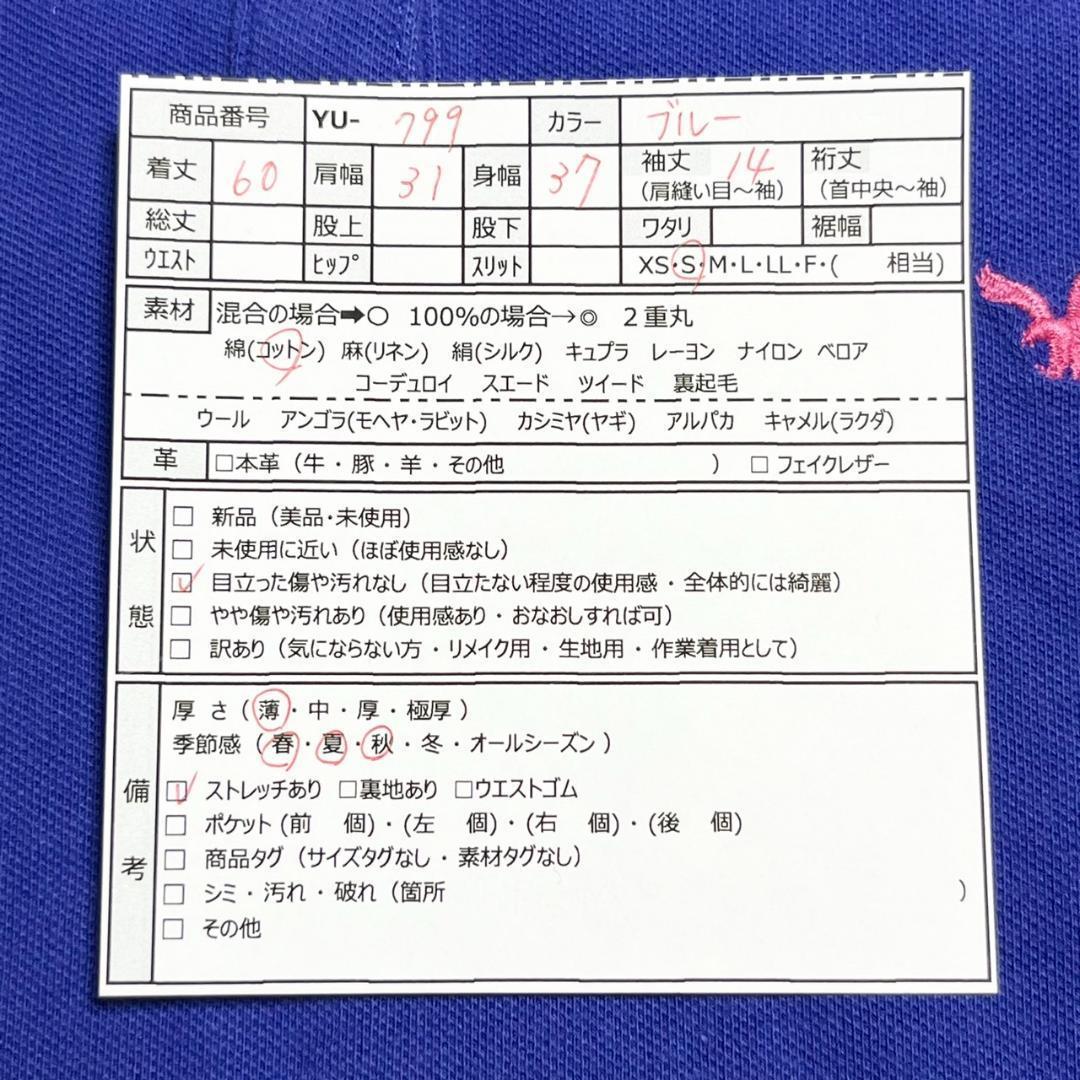 商品番号 YU- 799 カラー ブルー
着丈 60 肩幅 31 身幅 37 袖丈 14 (肩縫い目～袖) 裄丈 (首中央～袖)
総丈 股上 股下 ワタリ 裾幅
ウエスト ヒップ スリット XS・S・M・L・LL・F・( 相当)
素材 混合の場合➡○ 100%の場合→◎ 2重丸
綿(コットン) 麻(リネン) 絹(シルク) キュプラ レーヨン ナイロン ベロア
コーデュロイ スエード ツイード 裏起毛
ウール アンゴラ(モヘヤ・ラビット) カシミヤ(ヤギ) アルパカ キャメル(ラクダ)
革 □本革（牛・豚・羊・その他 ） □ フェイクレザー
状態
□ 新品（美品・未使用）
□ 未使用に近い（ほぼ使用感なし）
☑ 目立った傷や汚れなし（目立たない程度の使用感・全体的には綺麗）
□ やや傷や汚れあり（使用感あり・おなおしすれば可）
□ 訳あり（気にならない方・リメイク用・生地用・作業着用として）
備考
厚さ（薄・中・厚・極厚）
季節感（春・夏・秋・冬・オールシーズン）
☑ ストレッチあり □裏地あり □ウエストゴム
□ ポケット（前 個）・（左 個）・（右 個）・（後 個）
□ 商品タグ（サイズタグなし・素材タグなし）
□ シミ・汚れ・破れ（箇所 ）
□ その他